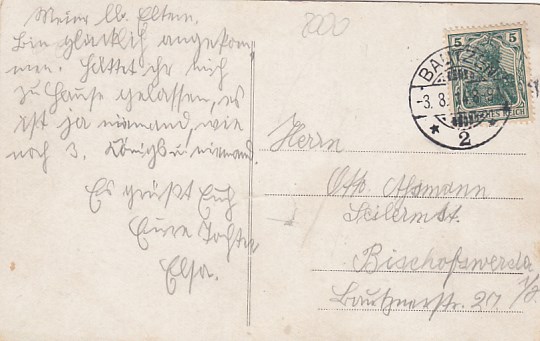 Meine lb. Eltern.
Bin glücklich angekom-
men. Hättet ihr mich
zu Hause gelassen, es
ist ja niemand, wie
noch 3. Königsbr. niemand.
Es grüßt Euch
Eure Tochter
Elsa.
7000
5 5
BAUTZEN
-3.8.
* 2 *
DEUTSCHES REICH
Herrn
Otto
Seilermstr.
Bischofswerda
i/S.
Bautznerstr. 20